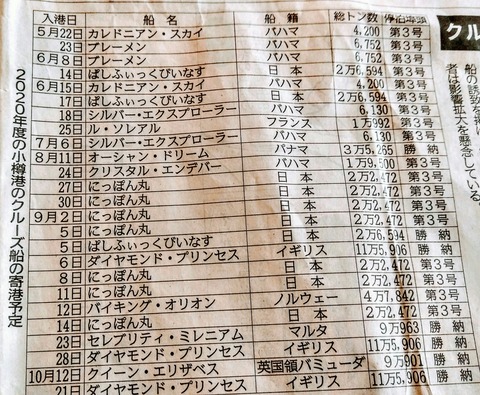 入港日 船名 船籍 総トン数 停泊埠頭
5月22日 カレドニアン・スカイ バハマ 4,200 第3号
23日 ブレーメン バハマ 6,752 第3号
6月8日 ブレーメン バハマ 6,752 第3号
14日 ぱしふぃっくびいなす 日本 2万6,594 第3号
6月15日 カレドニアン・スカイ バハマ 4,200 第3号
17日 ぱしふぃっくびいなす 日本 2万6,594 第3号
18日 シルバー・エクスプローラー バハマ 6,130 第3号
25日 ル・ソレアル フランス 1万992 第3号
7月6日 シルバー・エクスプローラー バハマ 6,130 第3号
8月11日 オーシャン・ドリーム パナマ 3万5,265 勝納
24日 クリスタル・エンデバー バハマ 1万9,500 第3号
27日 にっぽん丸 日本 2万2,472 第3号
30日 にっぽん丸 日本 2万2,472 第3号
9月2日 にっぽん丸 日本 2万2,472 第3号
5日 にっぽん丸 日本 2万2,472 第3号
5日 ぱしふぃっくびいなす 日本 2万6,594 勝納
6日 ダイヤモンド・プリンセス イギリス 11万5,906 勝納
8日 にっぽん丸 日本 2万2,472 第3号
11日 にっぽん丸 日本 2万2,472 第3号
12日 バイキング・オリオン ノルウェー 4万7,842 第3号
14日 にっぽん丸 日本 2万2,472 第3号
23日 セレブリティ・ミレニアム マルタ 9万963 勝納
28日 ダイヤモンド・プリンセス イギリス 11万5,906 勝納
10月12日 クイーン・エリザベス 英国領バミューダ 9万901 勝納
21日 ダイヤモンド・プリンセス イギリス 11万5,906 勝納
2020年度の小樽港のクルーズ船の寄港予定
クル
船の誘致を
者は影響拡大を懸念している。